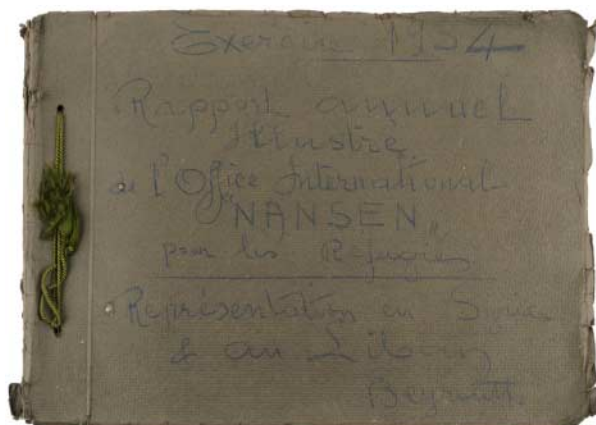 Exercice 1934
Rapport annuel
Illustré
de l'Office International
"NANSEN"
pour les Réfugiés
Représentation en Syrie
& au Liban
Beyrouth.